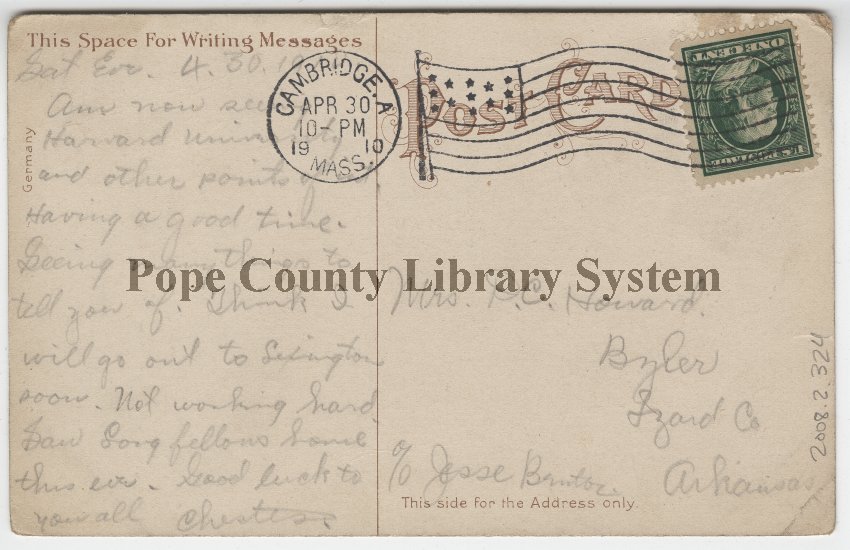 This Space For Writing Messages
Sat Eve. 4.30.10
Am now seeing
Harvard University
and other points
Having a good time.
Seeing many things to
tell you of. Think I
will go out to Lexington
soon. Not working hard.
Saw Longfellows home
this eve. Good luck to
you all Chester.
Germany
CAMBRIDGE, A
APR 30
10-PM
19 10
MASS.
POST CARD
ONE CENT
U.S. POSTAGE
Pope County Library System
Mrs. Howard.
Byler
Izard Co
Arkansas.
c/o Jesse
This side for the Address only.
2008.2.324